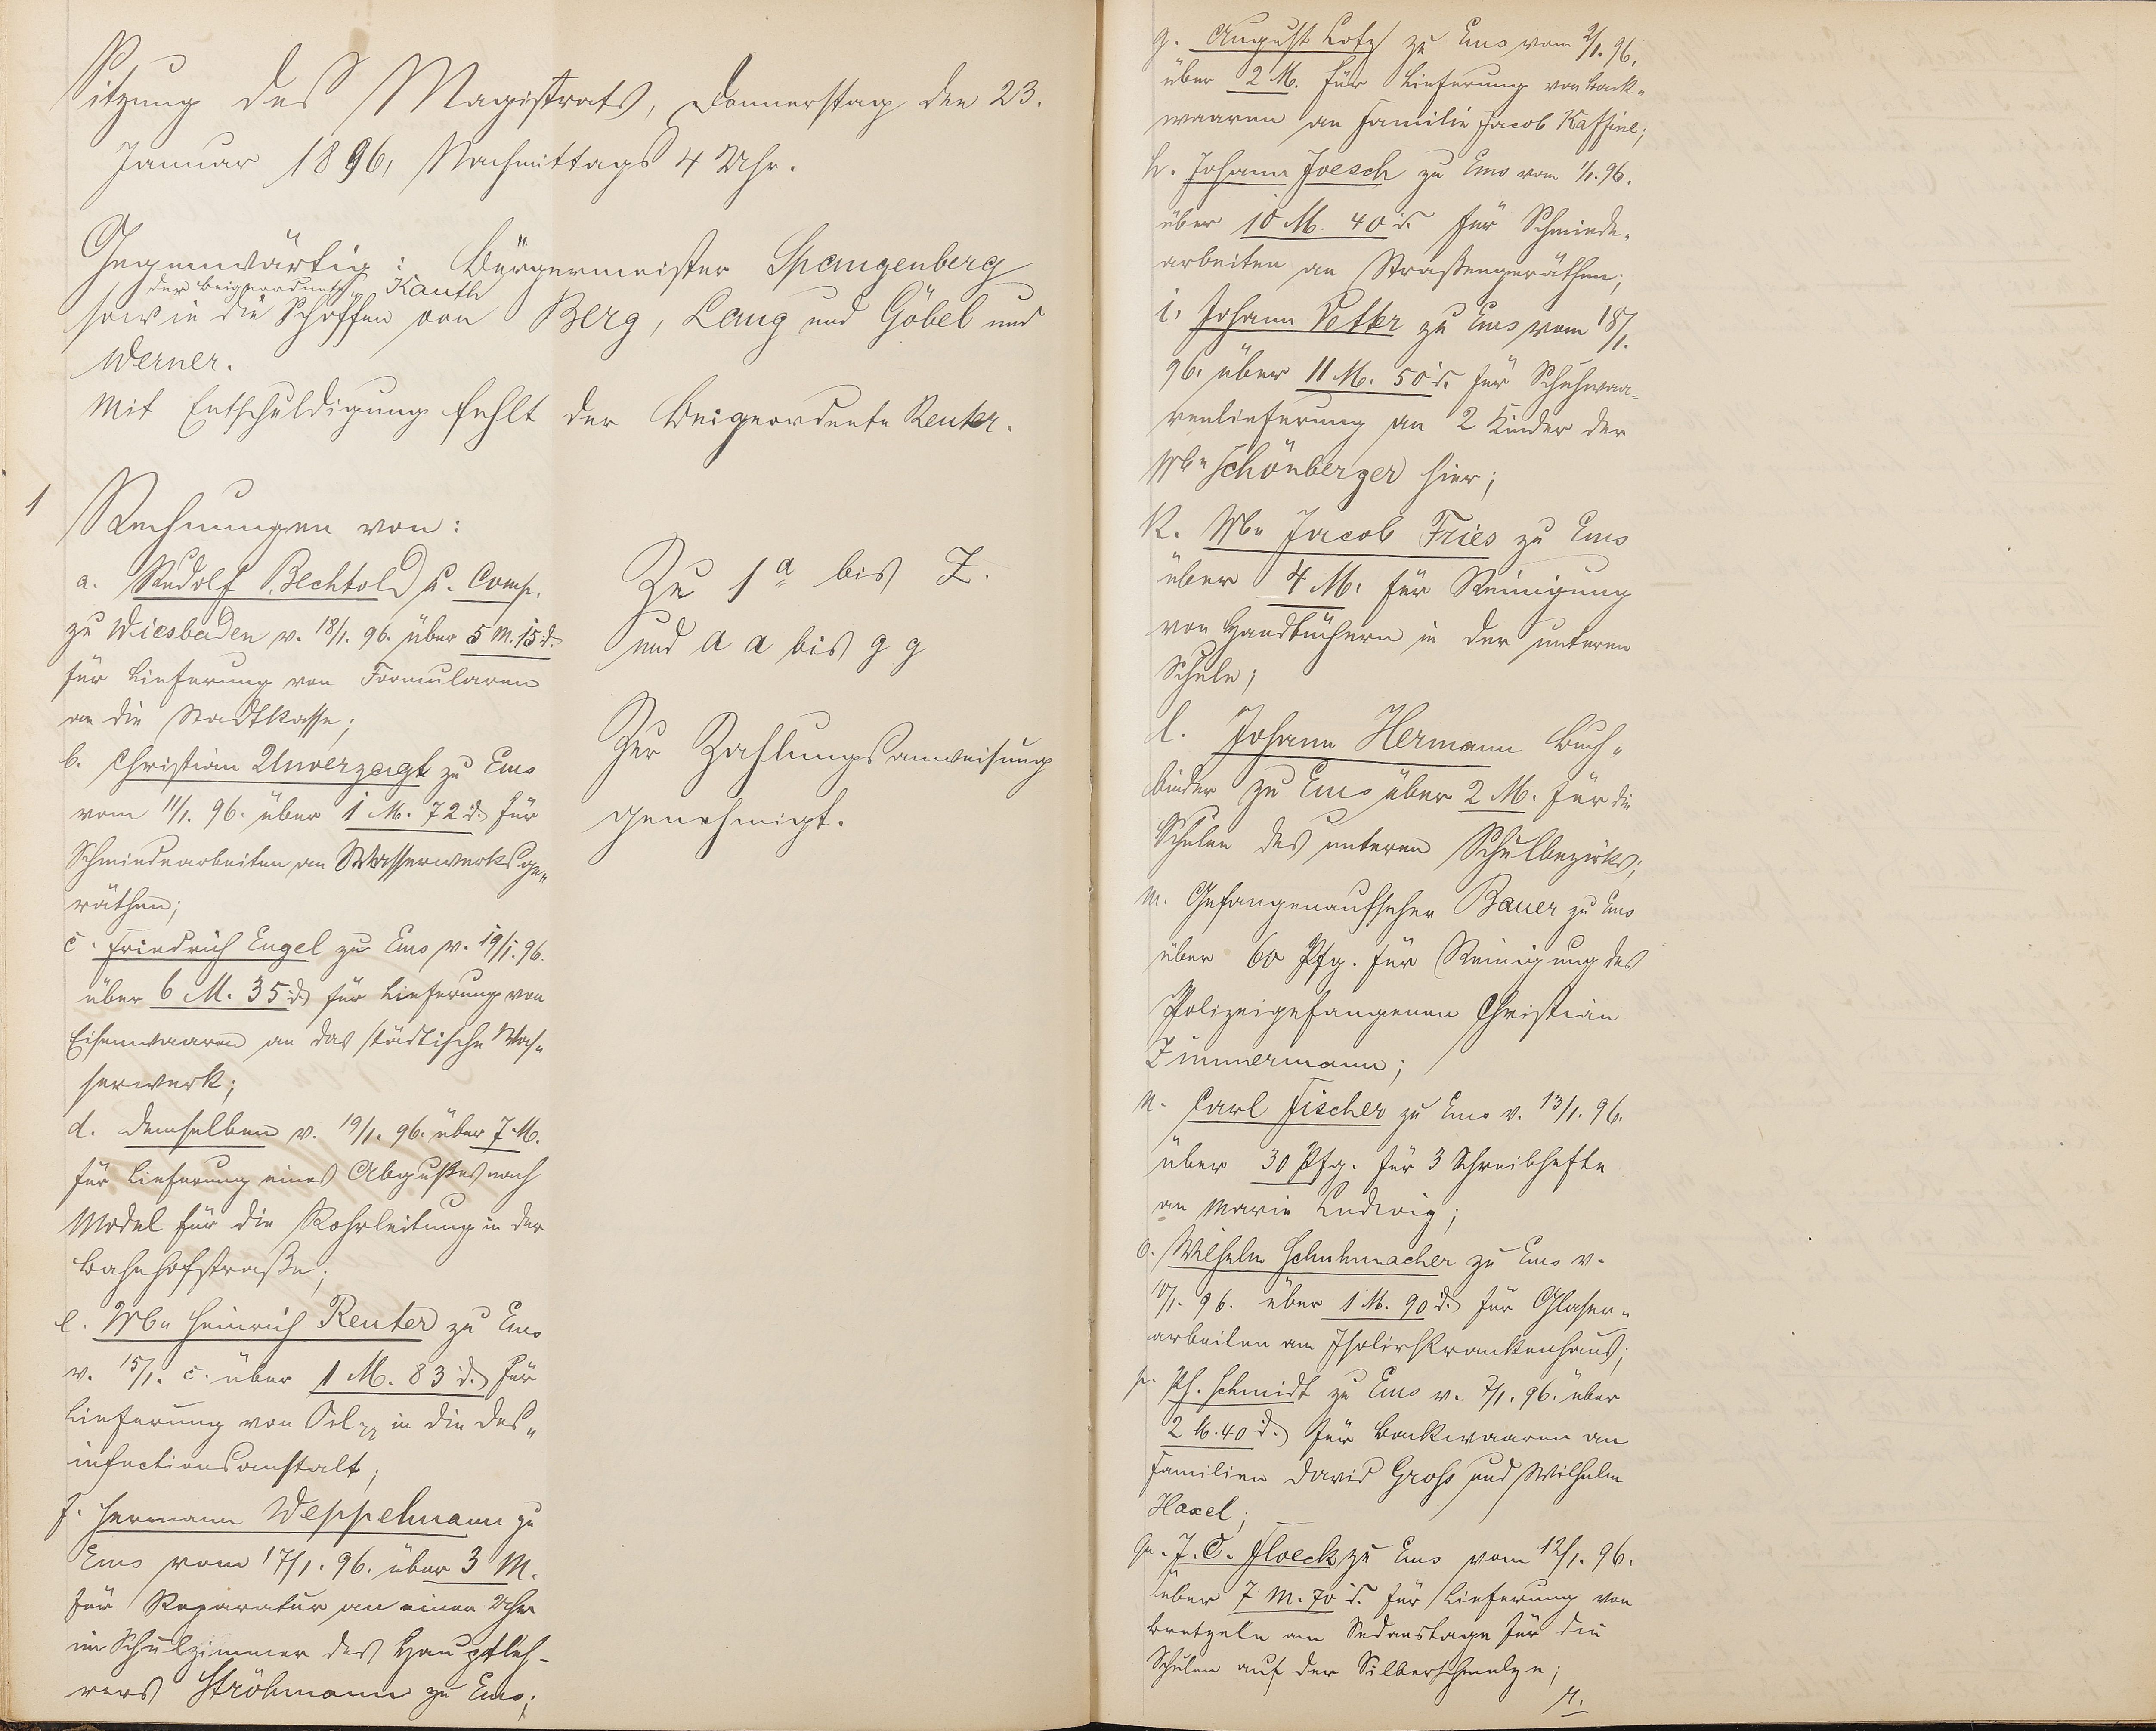 Sitzung des Magistrats, Donnerstag den 23.
Januar 1896, Nachmittags 4 Uhr.
Gegenwärtig: Bürgermeister Spangenberg
der Beigeordnete Kauth
sowie die Schöffen von Berg, Lang und Göbel und
Werner.
Mit Entschuldigung fehlt der Beigeordnete Reuter.
1
Rechnungen von:
a. Rudolf Bechtold u. Comp.
zu Wiesbaden v. 18/1. 96. über 5 M. 15 d.
für Lieferung von Formularen
an die Stadtkasse;
b. Christian Unverzagt zu Ems
vom 11/1. 96. über 1 M. 72 d. für
Schmiedearbeiten an Wasserwerksge„
räthen;
c. Friedrich Engel zu Ems v. 19/1. 96.
über 6 M. 35 d. für Lieferung von
Eisenwaaren an das städtische Was„
serwerk;
d. demselben v. 19/1. 96. über 7 M.
für Lieferung eines Abgußes nach
Model für die Rohrleitung in der
Bahnhofstraße;
e. Wwe Heinrich Reuter zu Ems
v. 15/1. c. über 1 M. 83 d. für
Lieferung von Oel in die Des„
infectionsanstalt;
f. Hermann Weppelmann zu
Ems vom 17/1. 96. über 3 M.
für Reparatur an einer Uhr
im Schulzimmer des Hauptleh-
rers Ströhmann zu Ems;
Zu 1 a bis Z.
und a a bis g g
Zur Zahlungsanweisung
genehmigt.
g. August Lotz zu Ems vom 2/1. 96.
über 2 M. für Lieferung von Back„
waaren an Familie Jacob Kaffine;
h. Johann Joesch zu Ems vom 1/1. 96.
über 10 M. 40 d. für Schmiede„
arbeiten an Straßengeräthen;
i. Johann Vetter zu Ems vom 18/1.
96. über 11 M. 50 d. für Schuhwaa„
renlieferung an 2 Kinder der
Wwe Schönberger hier;
k. Wwe Jacob Fries zu Ems
über 4 M. für Reinigung
von Handtüchern in der unteren
Schule;
l. Johann Hermann Buch„
binder zu Ems über 2 M. für die
Schulen des unteren Schulbezirks;
m. Gefangenaufseher Bauer zu Ems
über 60 Pfg. für Reinigung des
Polizeigefangenen Christian
Zimmermann;
n. Carl Fischer zu Ems v. 13/1. 96.
über 30 Pfg. für 3 Schreibhefte
an Marie Ludwig;
o. Wilhelm Schuhmacher zu Ems v.
10/1. 96. über 1 M. 90 d. für Glaser„
arbeiten am Isolirkrankenhaus;
p. Ph. Schmidt zu Ems v. 7/1. 96. über
2 M. 40 d. für Backwaaren an
Familien David Groß und Wilhelm
Haxel;
qu. J. C. Floeck zu Ems vom 12/1. 96.
über 7 M. 70 d. für Lieferung von
Bretzeln am Sedanstage für die
Schulen auf der Silberschmelze;
r.